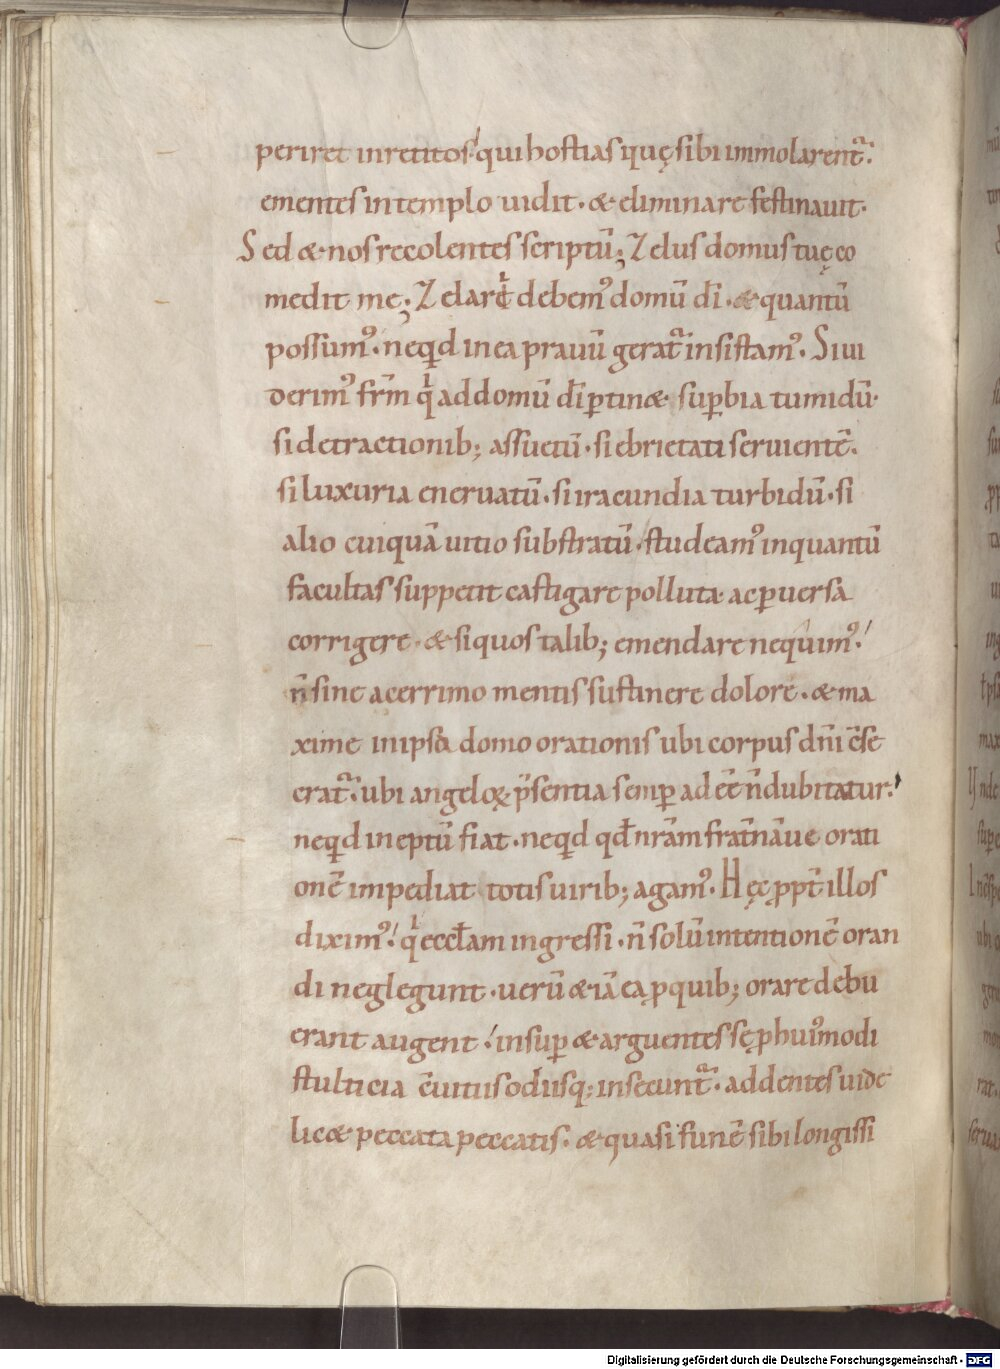 periret inretitos·' qui hostias quę sibi immolarent᷑.
ementes in templo uidit· & eliminare festinauit·
Sed &· nos recolentes scriptū; Zelus domus tuę co
medit me; Zelare debem᷒ domū dī· & quantū
possum᷒· neq̇d in ea prauū gerat᷑ insistam᷒· Si ui
derim᷒ fr̄m q̇ ad domū dī ꝑtin& suꝑbia tumidū·
si detractionib; assuetū· si ebrietati seruientē.
si luxuria eneruatū· si iracundia turbidū· si
alio cuiquā uitio substratū· studeam᷒ inquantū
facultas suppetit castigare polluta ac ꝑuersa
corrigere· & si quos talib; emendare nequim᷒·'
n̄ sine acerrimo mentis sustinere dolore· & ma
xime in ipsa domo orationis ubi corpus dn̄i c̄se
crat᷑· ubi angeloꝝ p̄sentia semꝑ adeē n̄ dubitatur·'
neq̇d ineptū fiat· neq̇d qđ nr̄am frat̄nāue orati
onē impediat totis uirib; agam᷒· Hęc ꝓpt̄ illos
dixim᷒·' q̇ eccłam ingressi· n̄ solū intentionē oran
di neglegunt· uerū & iā ea ꝓ quib; orare debu
erant augent·' insuꝑ & arguentes sę ꝓ hui᷒modi
stulticia c̄uitiis odiisq; insecunt᷑· addentes uide
lic& peccata peccatis· & quasi funē sibi longissi
Digitalisierung gefördert durch die Deutsche Forschungsgemeinschaft - DFG